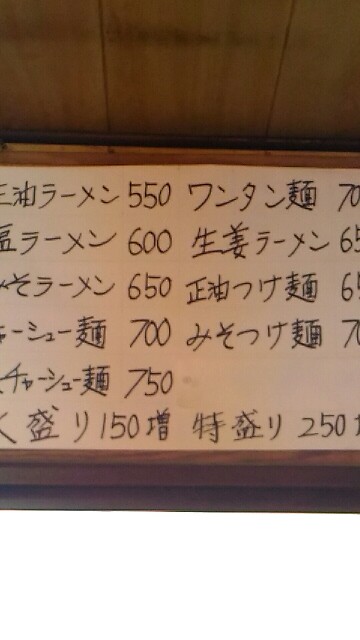 正油ラーメン 550 ワンタン麺 70
塩ラーメン 600 生姜ラーメン 65
みそラーメン 650 正油つけ麺 65
チャーシュー麺 700 みそつけ麺 70
チャーシュー麺 750
大盛り150増 特盛り 250増